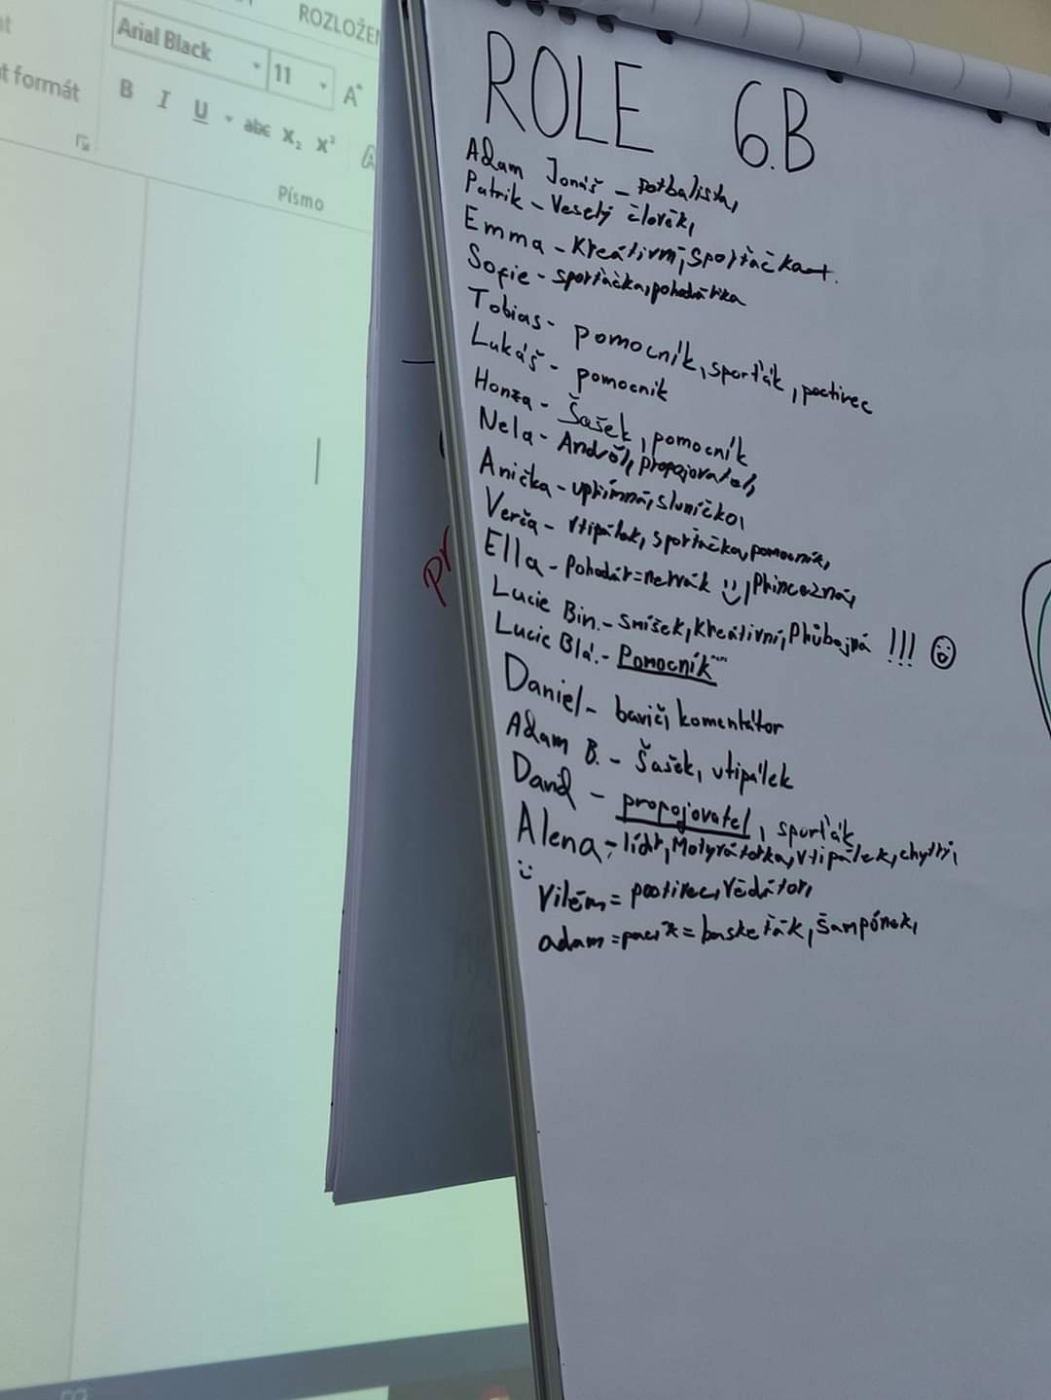 ROZLOŽEN
Arial Black
11
t formát
B I U abc X₂ X²
Písmo
ROLE 6.B
Adam Jonáš - fotbalista,
Patrik - Veselý člověk,
Emma - Kreativní, sporťačka
Sofie - sporťačka, pohodářka
Tobias - pomocník, sporťák, poctivec
Lukáš - pomocník
Honza - Šašek, pomocník
Nela - Anděl, propojovatel,
Anička - upřímná, sluníčko,
Verča - vtipálek, sporťačka, pomocník,
Ella - Pohodář = nervák
Lucie Bin. - smíšek, Kreativní, Průbojná !!!
Lucie Blá. - Pomocník
Daniel - bavič, komentátor
Adam B. - Šašek, vtipálek
David - propojovatel, sporťák
Alena - lídr, Motyvátorka, vtipálek, chytrá,
Vilém = poctivec, Vědátor,
adam = = basketák, šampónek,
pr